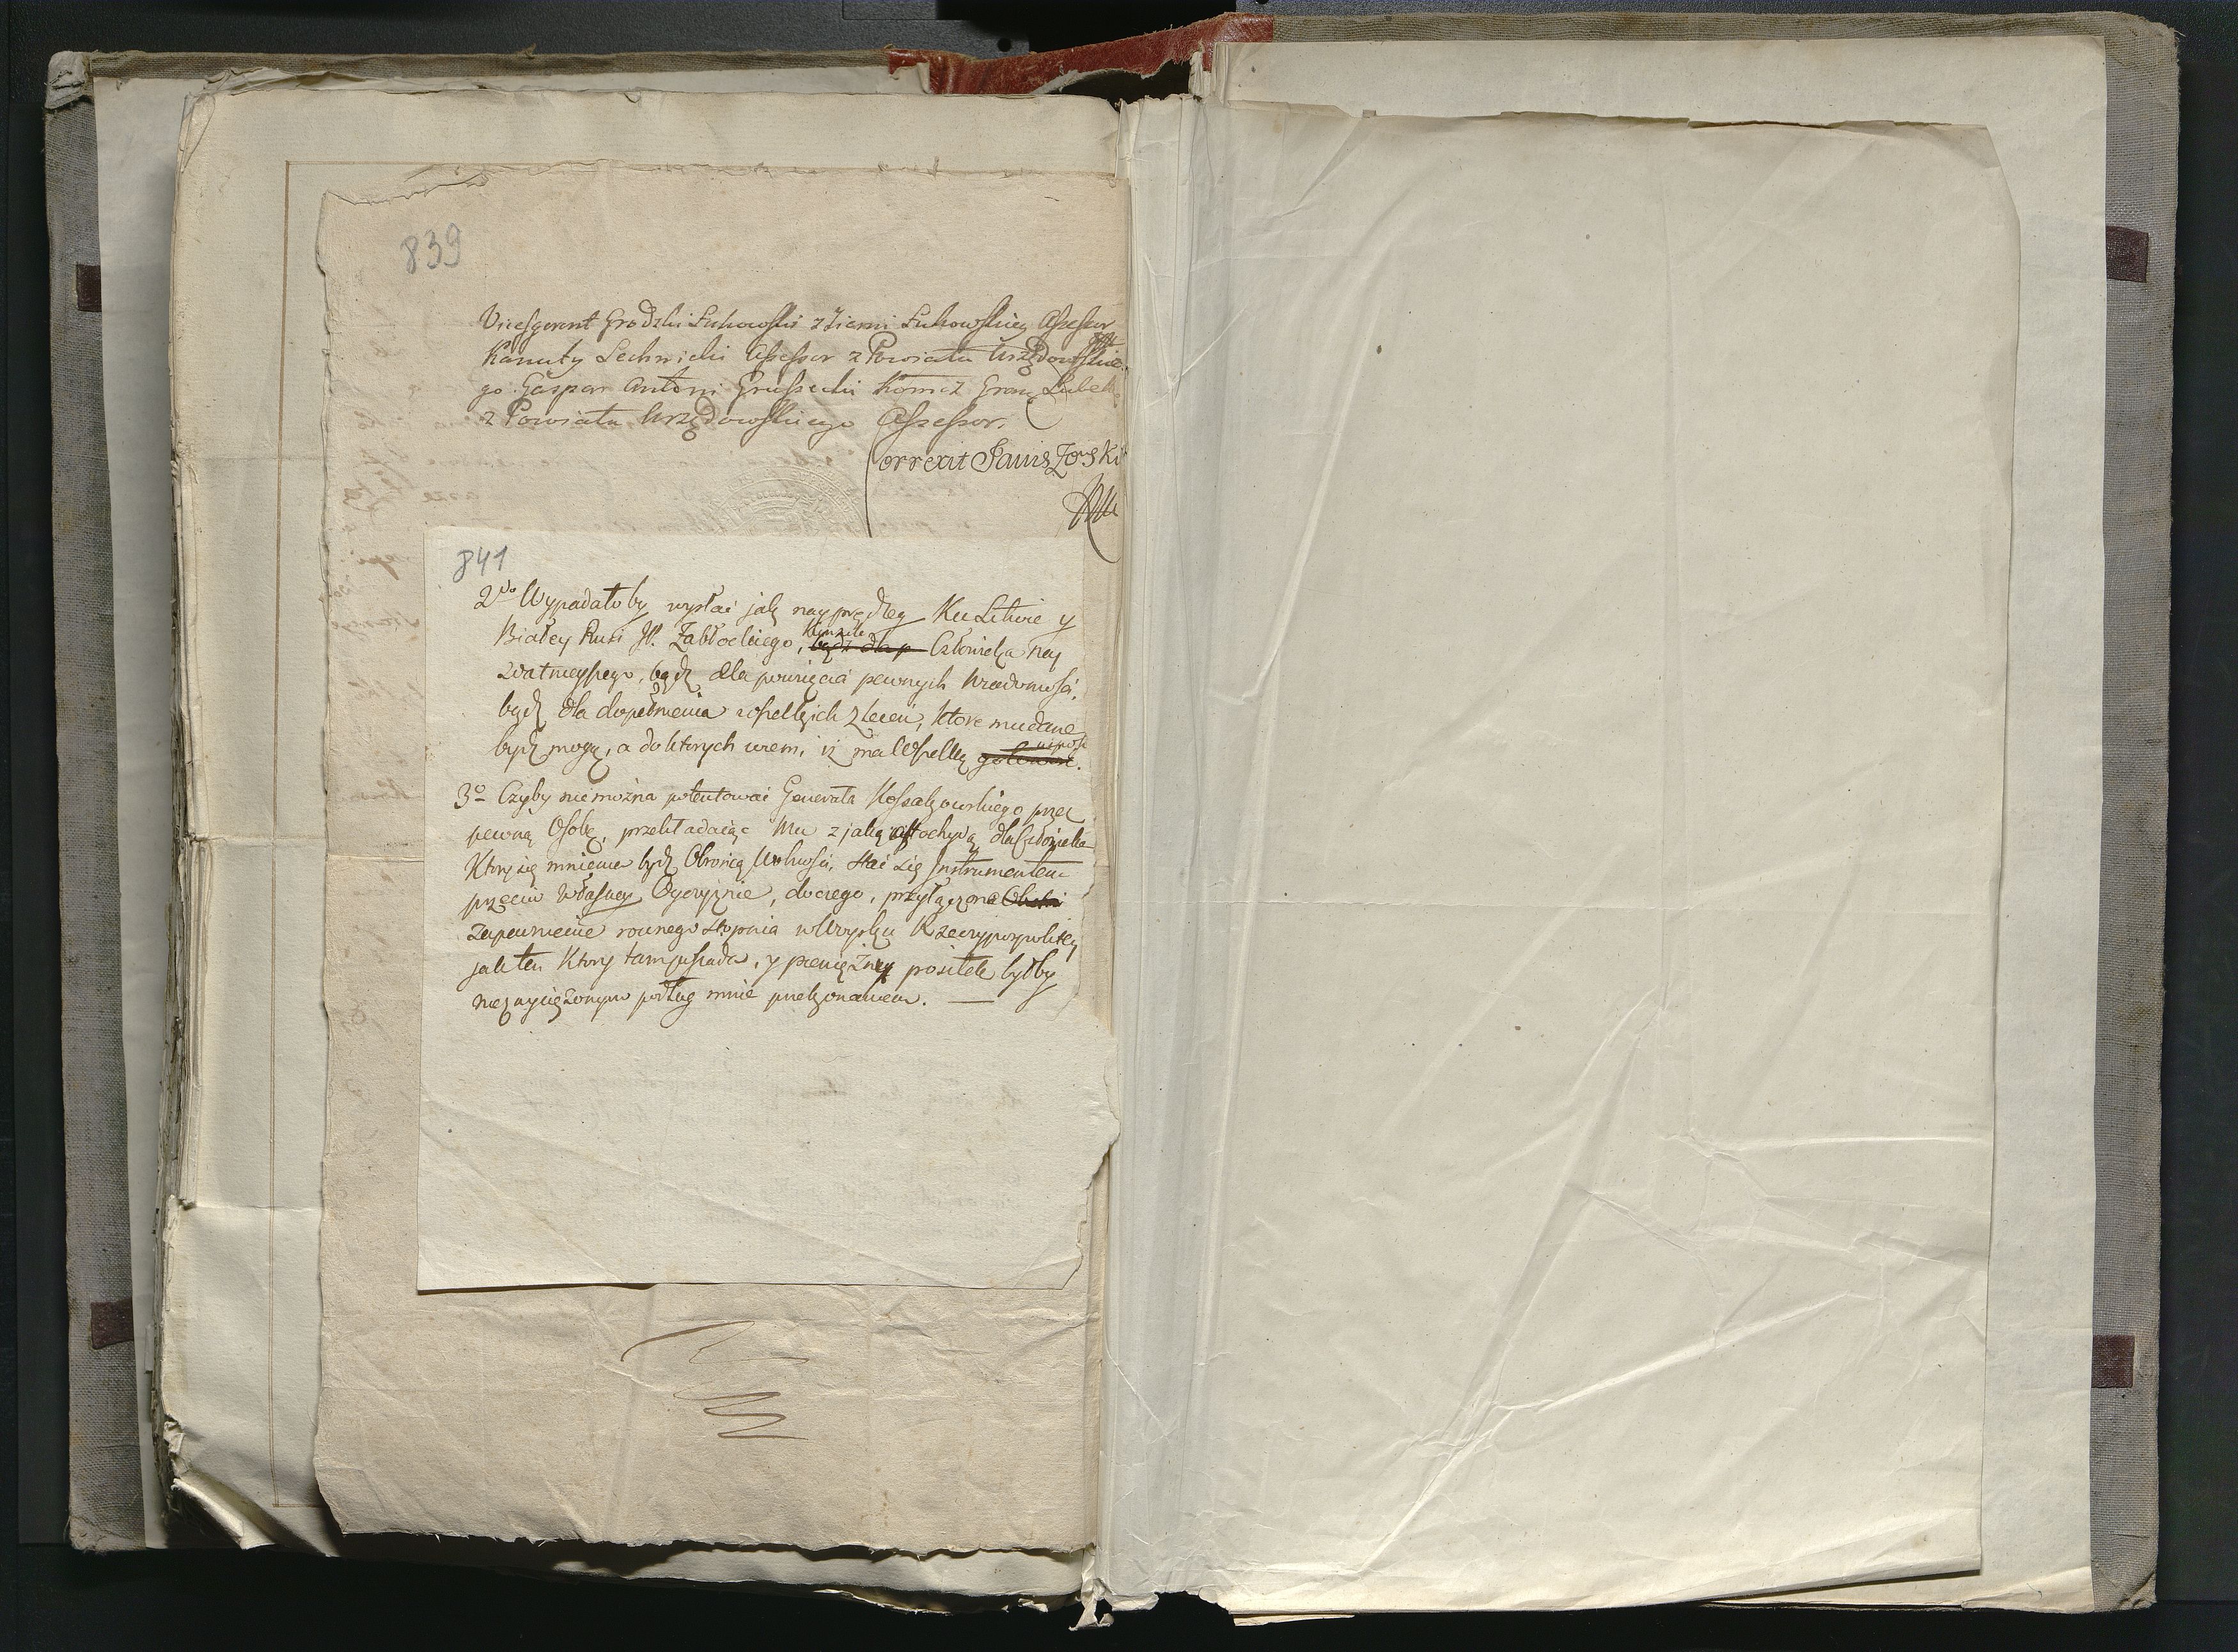 839
Vicesgerent Grodzki Łukowski z Ziemi Łukowskiey Assessor
Kanuty Lechnicki Assessor z Powiatu Urzędowskie-
go Gaspar Antoni Gruszecki Komiz Gran Lubel
z Powiatu Urzędowskiego Assessor.
Correxit
841
2do Wypadałoby wysłać jak nayprędzey Ku Litwie y
Białey Rusi JP. Zabłockiego, będź dla p Człowieka nay
zdatnieyszego, bądź dla powzięcia pewnych wiadomości,
bądź dla dopełnienia wszelkich zleceń, ktore mu dane
bydź mogą, a do ktorych wiem, iż ma wszelką
3o Czyby nie można potentować Generała Kossakowskiego przez
pewną Osobę, przekładaiąc Mu z jaką dla Człowieka
Ktory się mniema bydź Obrońcą Wolności, stać się Instrumentem
przeciw własney Oyczyznie, do czego, przyłączone
zapewnienie rownego stopnia w Woysku Rzeczypospolitey
jak ten Ktory tam posiada, y pieniężny posiłek byłby
niezwyciężonym podług mnie przekonaniem. —